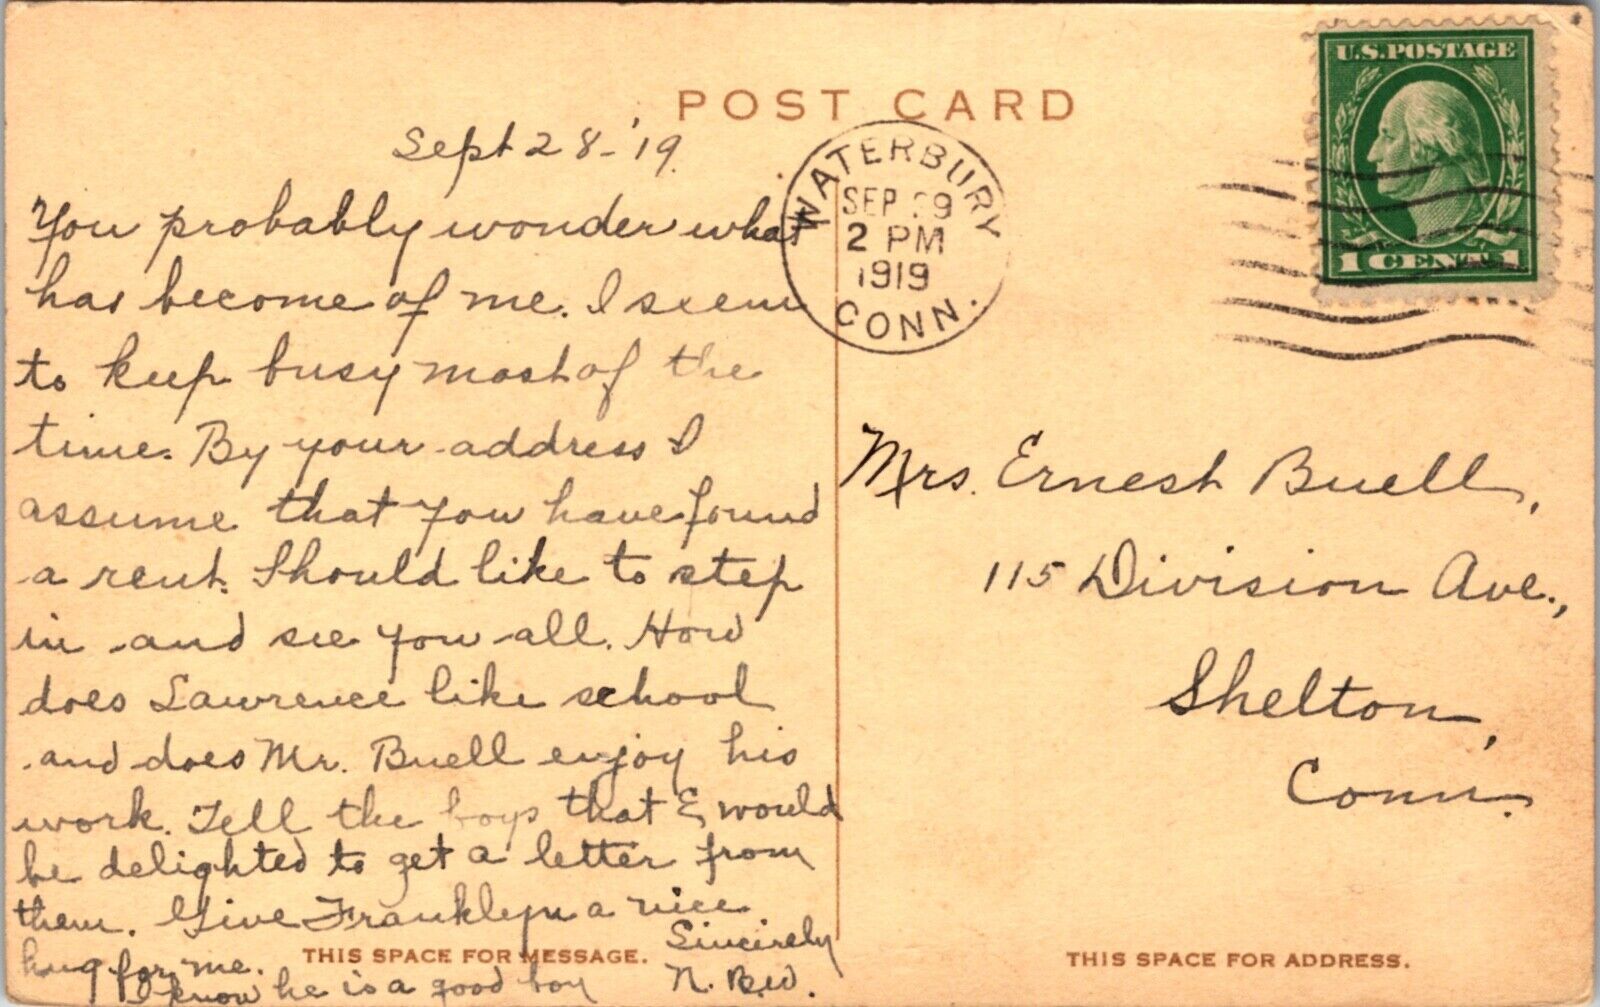 U.S. POSTAGE
1 CENT 1
POST CARD
WATERBURY
SEP 29
2 PM
1919
CONN.
Sept 28-'19.
You probably wonder what
has become of me. I seem
to keep busy most of the
time. By your address I
assume that you have found
a rent. Should like to step
in and see you all. How
does Lawrence like school
and does Mr. Buell enjoy his
work. Tell the boys that I would
be delighted to get a letter from
them. Give Franklyn a nice
hug for me.
I know he is a good boy
Sincerely
N. B. W.
Mrs. Ernest Buell,
115 Division Ave.,
Shelton,
Conn.
THIS SPACE FOR MESSAGE.
THIS SPACE FOR ADDRESS.